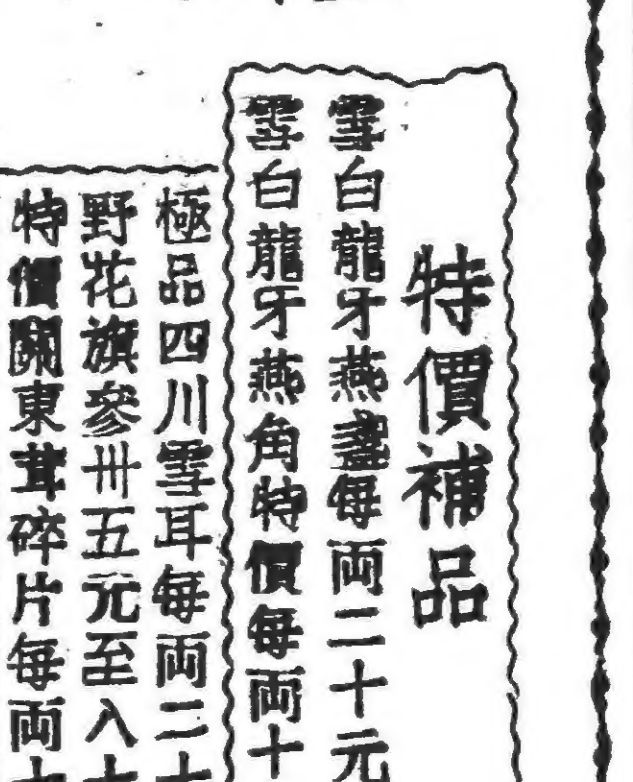 特價補品
雪白龍牙燕盞每両二十元
雪白龍牙燕角特價每両十
極品四川雪耳每両二十
野花旗參卅五元至入十
特價關東茸碎片每両十